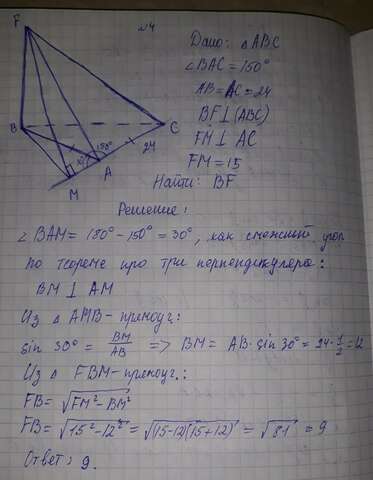 F
№4
Дано: △ABC
∠BAC = 150°
AB = AC = 24
BF⊥(ABC)
FM⊥ AC
FM = 15
Найти: BF
B
C
150°
30°
24
A
M
Решение:
∠BAM = 180° - 150° = 30°, как смежный угол
По теореме про три перпендикуляра:
BM ⊥ AM
Из △ AMB - прямоуг:
sin 30° = BM/AB => BM = AB · sin 30° = 24 · 1/2 = 12
Из △ FBM - прямоуг.:
FB = √FM² - BM²
FB = √15² - 12² = √(15-12)(15+12) = √81 = 9
Ответ: 9.